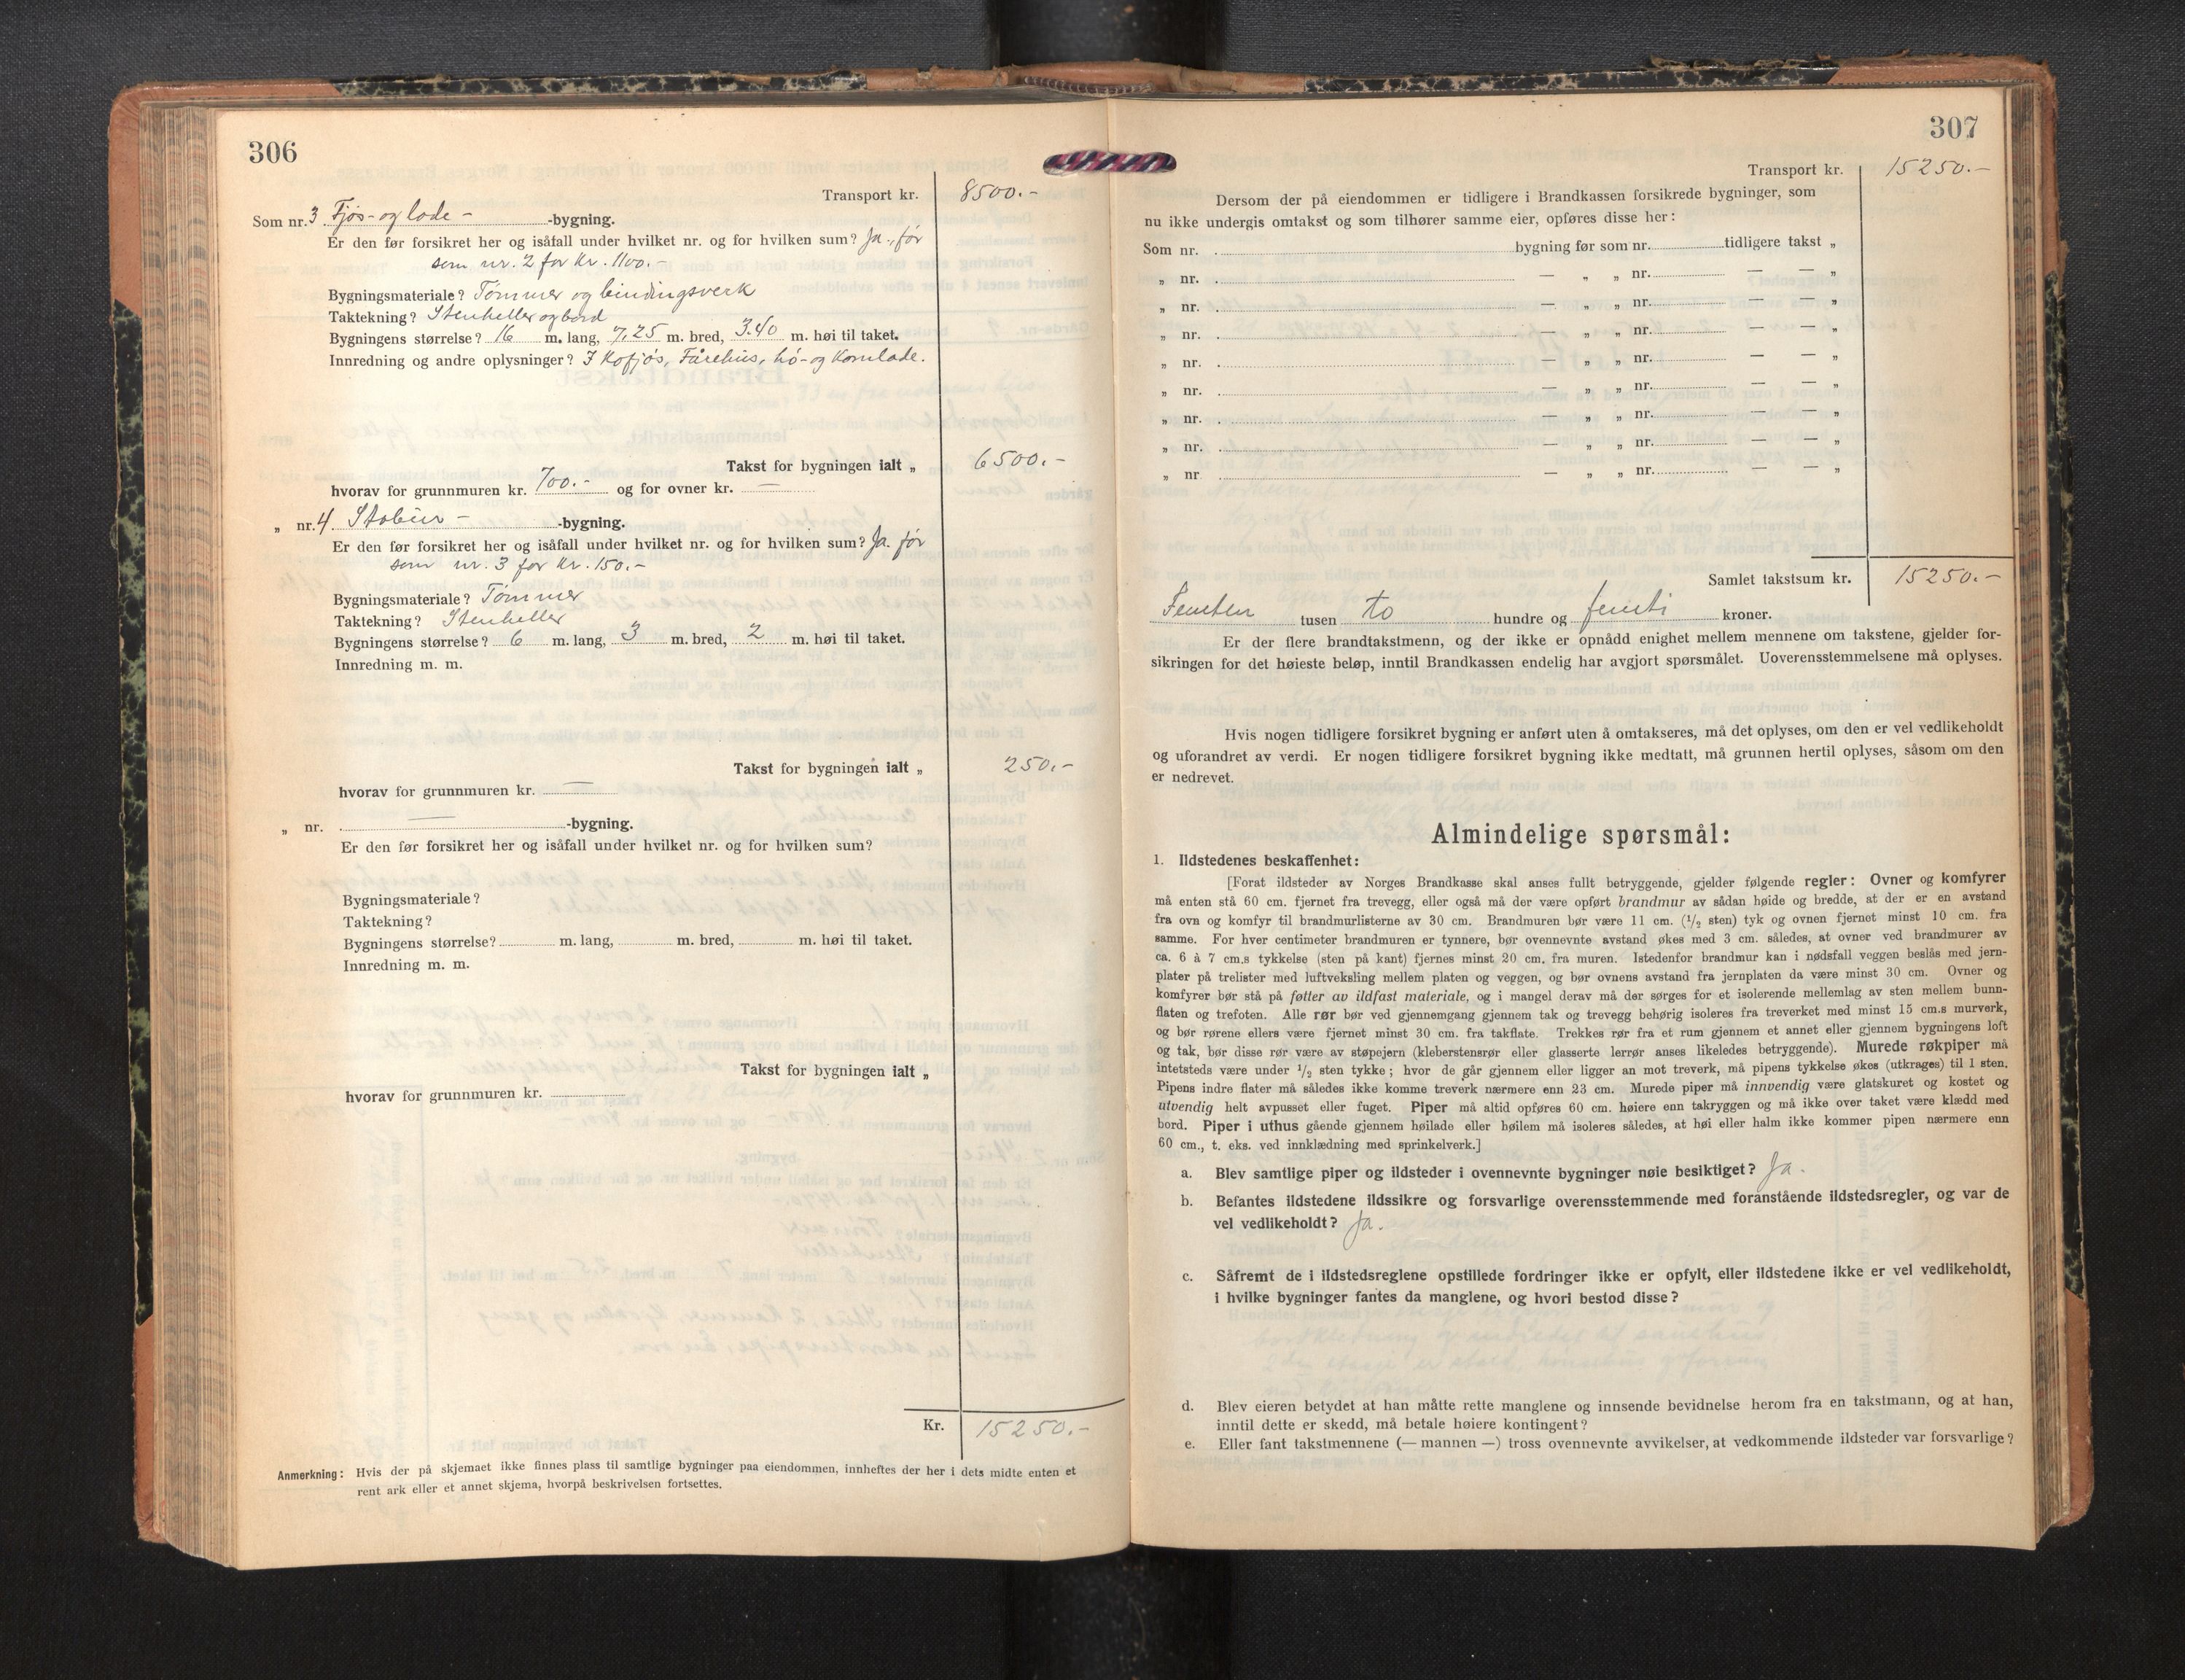 306
Transport kr. 8500.-
Som nr. 3 Fjøs- og lade- -bygning.
Er den før forsikret her og isåfall under hvilket nr. og for hvilken sum? Ja, før
som nr. 2 for kr. 1100.-
Bygningsmateriale? Tømmer og bindingsverk
Taktekning? Stenheller og bord
Bygningens størrelse? 16 m. lang, 7,25 m. bred, 3.40 m. høi til taket.
Innredning og andre oplysninger? I Kofjøs, Fårehus, hø- og Kornlade.
Takst for bygningen ialt „ 6500.-
hvorav for grunnmuren kr. 700.- og for ovner kr. —
„ nr. 4. Stabur - -bygning.
Er den før forsikret her og isåfall under hvilket nr. og for hvilken sum? Ja. før
som nr. 3 for kr. 150.-
Bygningsmateriale? Tømmer
Taktekning? Stenheller
Bygningens størrelse? 6 m. lang, 3 m. bred, 2 m. høi til taket.
Innredning m. m.
Takst for bygningen ialt „ 250.-
hvorav for grunnmuren kr. —
„ nr. — -bygning.
Er den før forsikret her og isåfall under hvilket nr. og for hvilken sum?
Bygningsmateriale?
Taktekning?
Bygningens størrelse? m. lang, m. bred, m. høi til taket.
Innredning m. m.
Takst for bygningen ialt „
hvorav for grunnmuren kr.
Kr. 15250.-
Anmerkning: Hvis der på skjemaet ikke finnes plass til samtlige bygninger paa eiendommen, innheftes der her i dets midte enten et
rent ark eller et annet skjema, hvorpå beskrivelsen fortsettes.
307
Transport kr. 15250.-
Dersom der på eiendommen er tidligere i Brandkassen forsikrede bygninger, som
nu ikke undergis omtakst og som tilhører samme eier, opføres disse her:
Som nr. bygning før som nr. tidligere takst „
„ nr. — „ „ nr. — — „
„ nr. — „ „ nr. — — „
„ nr. — „ „ nr. — — „
„ nr. — „ „ nr. — — „
„ nr. — „ „ nr. — — „
„ nr. — „ „ nr. — — „
„ nr. — „ „ nr. — — „
„ nr — „ „ nr. — — „
Samlet takstsum kr. 15250.-
Femten tusen to hundre og femti kroner.
Er der flere brandtakstmenn, og der ikke er opnådd enighet mellem mennene om takstene, gjelder for-
sikringen for det høieste beløp, inntil Brandkassen endelig har avgjort spørsmålet. Uoverensstemmelsene må oplyses.
Hvis nogen tidligere forsikret bygning er anført uten å omtakseres, må det oplyses, om den er vel vedlikeholdt
og uforandret av verdi. Er nogen tidligere forsikret bygning ikke medtatt, må grunnen hertil oplyses, såsom om den
er nedrevet.
Almindelige spørsmål:
1. Ildstedenes beskaffenhet:
[Forat ildsteder av Norges Brandkasse skal anses fullt betryggende, gjelder følgende regler: Ovner og komfyrer
må enten stå 60 cm. fjernet fra trevegg, eller også må der være opført brandmur av sådan høide og bredde, at der er en avstand
fra ovn og komfyr til brandmurlisterne av 30 cm. Brandmuren bør være 11 cm. (1/2 sten) tyk og ovnen fjernet minst 10 cm. fra
samme. For hver centimeter brandmuren er tynnere, bør ovennevnte avstand økes med 3 cm. således, at ovner ved brandmurer av
ca. 6 à 7 cm.s tykkelse (sten på kant) fjernes minst 20 cm. fra muren. Istedenfor brandmur kan i nødsfall veggen beslås med jern-
plater på trelister med luftveksling mellem platen og veggen, og bør ovnens avstand fra jernplaten da være minst 30 cm. Ovner og
komfyrer bør stå på føtter av ildfast materiale, og i mangel derav må der sørges for et isolerende mellemlag av sten mellem bunn-
flaten og trefoten. Alle rør bør ved gjennemgang gjennem tak og trevegg behørig isoleres fra treverket med minst 15 cm.s murverk,
og bør rørene ellers være fjernet minst 30 cm. fra takflate. Trekkes rør fra et rum gjennem et annet eller gjennem bygningens loft
og tak, bør disse rør være av støpejern (kleberstensrør eller glasserte lerrør anses likeledes betryggende). Murede røkpiper må
intetsteds være under 1/2 sten tykke; hvor de går gjennem eller ligger an mot treverk, må pipens tykkelse økes (utkrages) til 1 sten.
Pipens indre flater må således ikke komme treverk nærmere enn 23 cm. Murede piper må innvendig være glatskuret og kostet og
utvendig helt avpusset eller fuget. Piper må altid opføres 60 cm. høiere enn takryggen og må ikke over taket være klædd med
bord. Piper i uthus gående gjennem høilade eller høilem må isoleres således, at høi eller halm ikke kommer pipen nærmere enn
60 cm., t. eks. ved innklædning med sprinkelverk.]
a. Blev samtlige piper og ildsteder i ovennevnte bygninger nøie besiktiget? Ja.
b. Befantes ildstedene ildssikre og forsvarlige overensstemmende med foranstående ildstedsregler, og var de
vel vedlikeholdt? Ja.
c. Såfremt de i ildstedsreglene opstillede fordringer ikke er opfylt, eller ildstedene ikke er vel vedlikeholdt,
i hvilke bygninger fantes da manglene, og hvori bestod disse?
d. Blev eieren betydet at han måtte rette manglene og innsende bevidnelse herom fra en takstmann, og at han,
inntil dette er skedd, må betale høiere kontingent?
e. Eller fant takstmennene (— mannen —) tross ovennevnte avvikelser, at vedkommende ildsteder var forsvarlige?